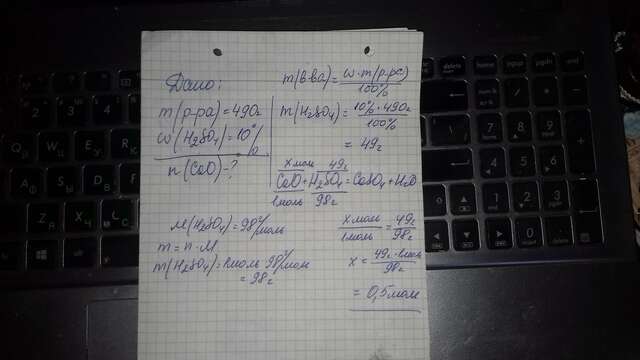 Дано:
m(р-ра)=490г
ω(H₂SO₄)=10%
n(CaO)=?
m(в-ва)=ω·m(р-ра)/100%
m(H₂SO₄)=10%·490г/100%
=49г
x моль 49г
CaO+H₂SO₄=CaSO₄+H₂O
1моль 98г
M(H₂SO₄)=98г/моль
m=n·M
m(H₂SO₄)=1моль·98г/моль
=98г
x моль/1моль=49г/98г
x=49г·1моль/98г
=0,5моль